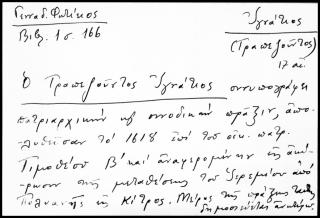 Γενναδ. Φωτίκος
Βιβλ: 1 σ. 166
Ἰγνάτιος
(Τραπεζοῦντος)
17 αἰ.
Ὁ Τραπεζοῦντος Ἰγνάτιος συνυπογράφει
πατριαρχικὴν κ συνοδικὴν πρᾶξιν, ἀπο-
λυθεῖσαν τὸ 1618 ἐπὶ τοῦ οἰκ. πατρ.
Τιμοθέου Β' καὶ ἀναφερομένην εἰς ἀκύ-
ρωσιν τῆς μεταθέσεως τοῦ Ἱερεμίου ἀπὸ
εἰς Κίτρος. Μέρος τῆς πράξεως
δημοσιεύεται